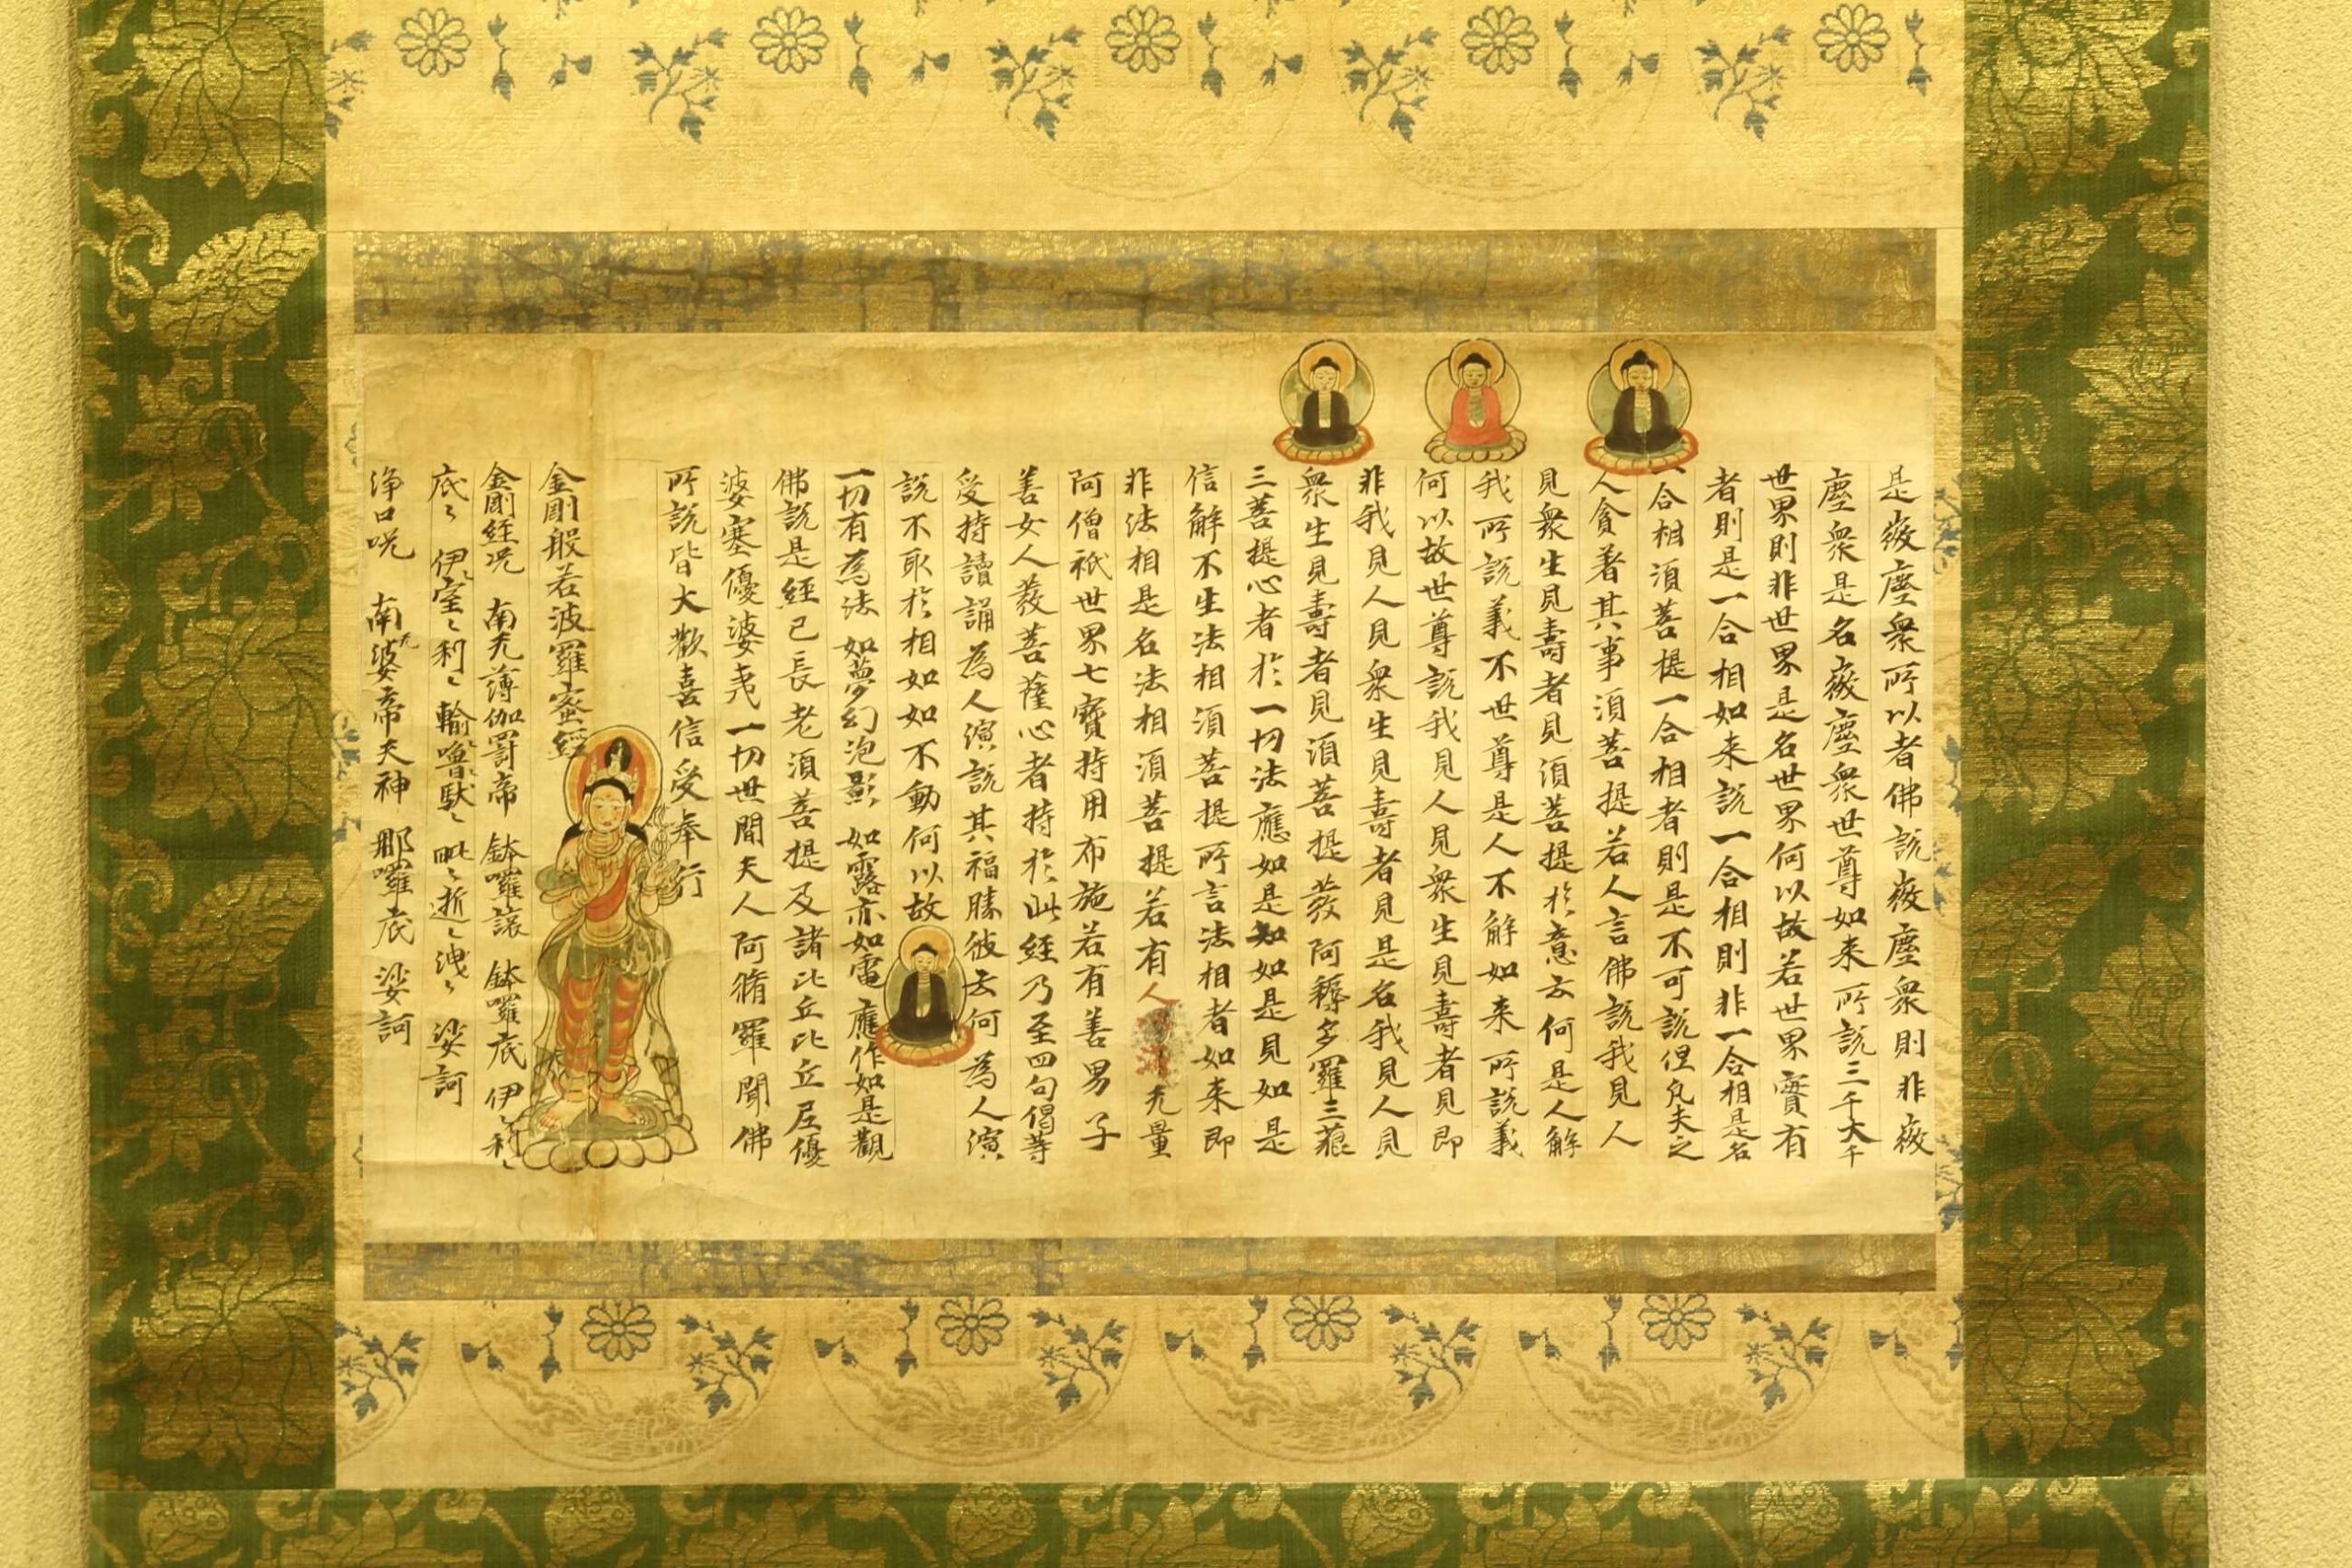 是㣲塵衆所以者佛說㣲塵衆則非㣲
塵衆是名㣲塵衆世尊如来所說三千大千
世界則非世界是名世界何以故若世界實有
者則是一合相如来說一合相則非一合相是名
一合相須菩提一合相者則是不可說但凡夫之
人貪著其事須菩提若人言佛說我見人
見衆生見壽者見須菩提扵意云何是人解
我所說義不世尊是人不解如来所說義
何以故世尊說我見人見衆生見壽者見即
非我見人見衆生見壽者見是名我見人見
衆生見壽者見須菩提發阿耨多羅三藐
三菩提心者扵一切法應如是知如是見如是
信解不生法相須菩提所言法相者如来即
非法相是名法相須菩提若有人无量
阿僧祇世界七寶持用布施若有善男子
善女人發菩薩心者持扵此經乃至四句偈等
受持讀誦為人演說其福勝彼云何為人演
說不取扵相如如不動何以故
一切有為法如夢幻泡影如露亦如電應作如是觀
佛說是經已長老須菩提及諸比丘比丘尼優
婆塞優婆夷一切世間天人阿脩羅聞佛
所說皆大歡喜信受奉行
金剛般若波羅蜜經
金剛經呪 南无薄伽罰帝 鉢囉讓 鉢囉底 伊〻利〻
底〻 伊室〻利〻 輸嚕馱〻 毗〻逝〻 洩〻 娑訶
淨口呪 南无婆帝天神 那囉底 娑訶